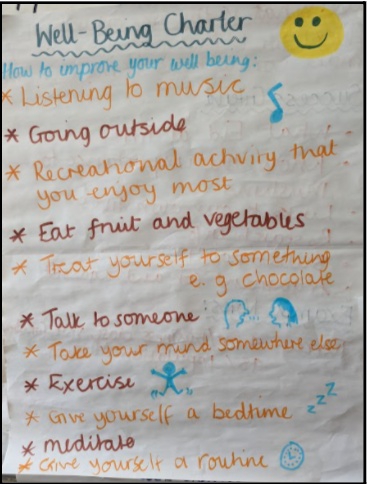 Well-Being Charter
How to improve your well being:
* Listening to music
* Going outside
* Recreational activiry that
you enjoy most
* Eat fruit and vegetables
* Treat yourself to something
e.g chocolate
* Talk to someone
* Take your mind somewhere else
* Exercise
* Give yourself a bedtime zzz
* meditate
* Give yourself a routine